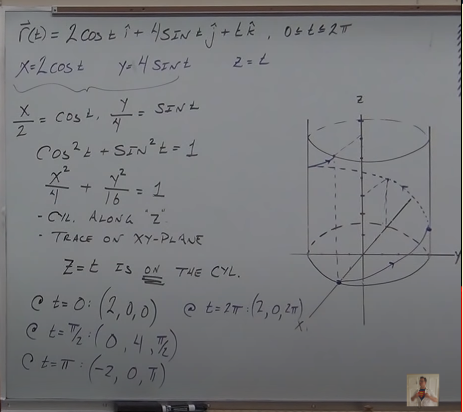 r⃗(t) = 2cost î + 4SINt ĵ + t k̂, 0≤t≤2π
X=2cost y=4SINt z=t
x/2 = cost, y/4 = SINt
cos²t + SIN²t = 1
x²/4 + y²/16 = 1
- CYL. ALONG "Z"
- TRACE ON XY-PLANE
Z=t IS ON THE CYL.
@ t=0: (2,0,0) @ t=2π: (2,0,2π)
@ t=π/2: (0,4,π/2)
@ t=π: (-2,0,π)
z
y
x